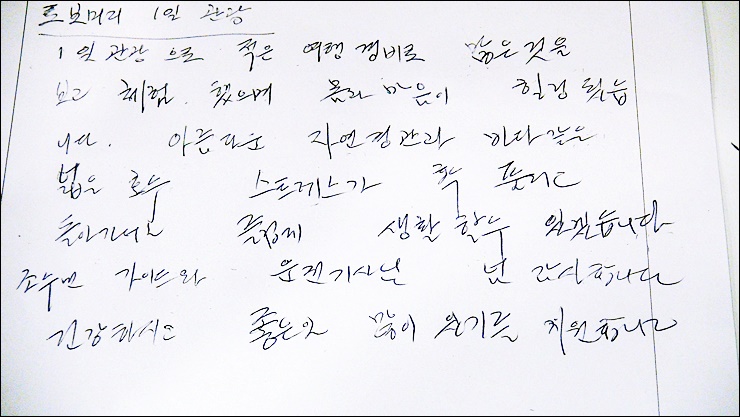 토보머리 1일 관광
1일 관광으로 적은 여행 경비로 많은것을
보고 체험 했으며 몸과 마음이 힐링 됬습
니다. 아름다운 자연경관과 바다같은
넓은 호수 스트레스가 확 풀리고
돌아가서도 즐겁게 생활 할수 있겠습니다
조수민 가이드와 운전기사님 넘 감사합니다
건강하시고 좋은일 많이 있기를 기원합니다